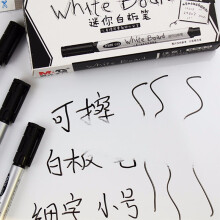 White Board
迷你白板笔
M&G
White Board
可擦 S S S
白板
细字 小号